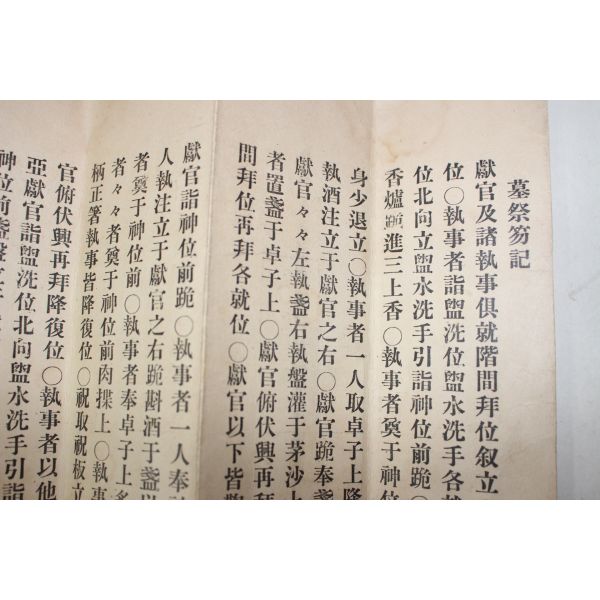 墓祭笏記
獻官及諸執事俱就階間拜位叙立
位〇執事者詣盥洗位盥水洗手各就
位北向立盥水洗手引詣神位前跪〇
香爐前進三上香〇執事者奠于神位
身少退立〇執事者一人取卓子上降
執酒注立于獻官之右〇獻官跪奉盞
獻官々々左執盞右執盤灌于茅沙上
者置盞于卓子上〇獻官俯伏興再拜
間拜位再拜各就位〇獻官以下皆
獻官詣神位前跪〇執事者一人奉神
人執注立于獻官之右跪斟酒于盞
者奠于神位前〇執事者奉卓子上
者々々者奠于神位前肉楪上〇執事
柄正箸執事皆降復位〇祝取祝板立
官俯伏興再拜降復位〇執事者以他
亞獻官詣盥洗位北向盥水洗手引詣
神位前盞盤